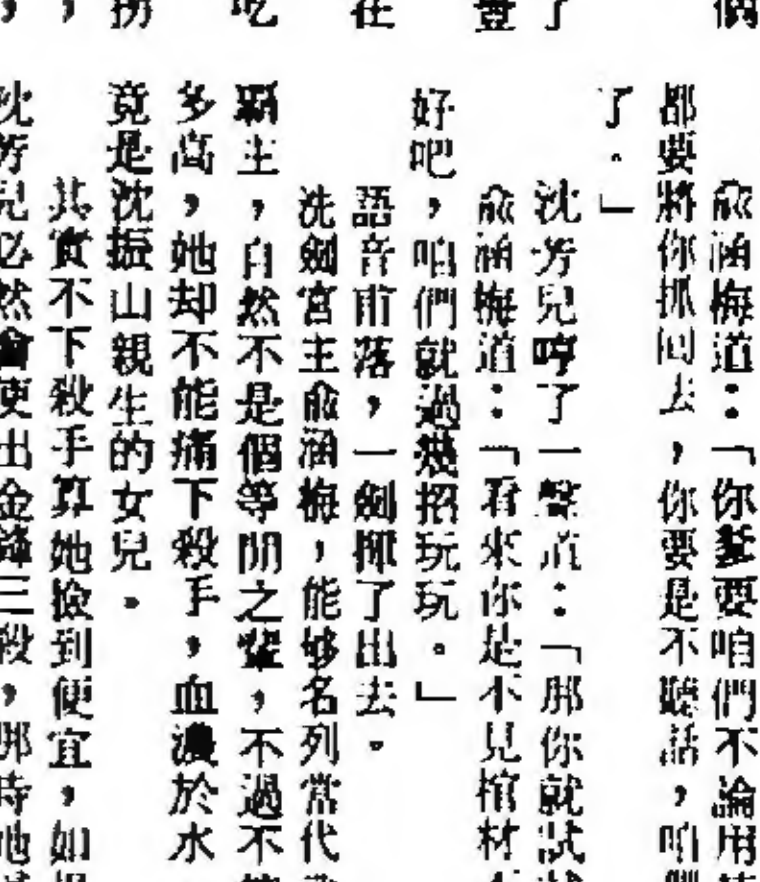 俞涵梅道：「你爹要咱們不論用
都要將你抓回去，你要是不聽話，咱
了。」
沈芳兒哼了一聲道：「那你就試
俞涵梅道：「看來你是不見棺材
好吧，咱們就過幾招玩玩。」
語音甫落，一劍揮了出去。
洗劍宮主俞涵梅，能够名列當代
霸主，自然不是個等閒之輩，不過不
多高，她却不能痛下殺手，血濃於水
竟是沈振山親生的女兒。
其實不下殺手算她撿到便宜，如
沈芳兒必然會使出金鋒三殺，那時她